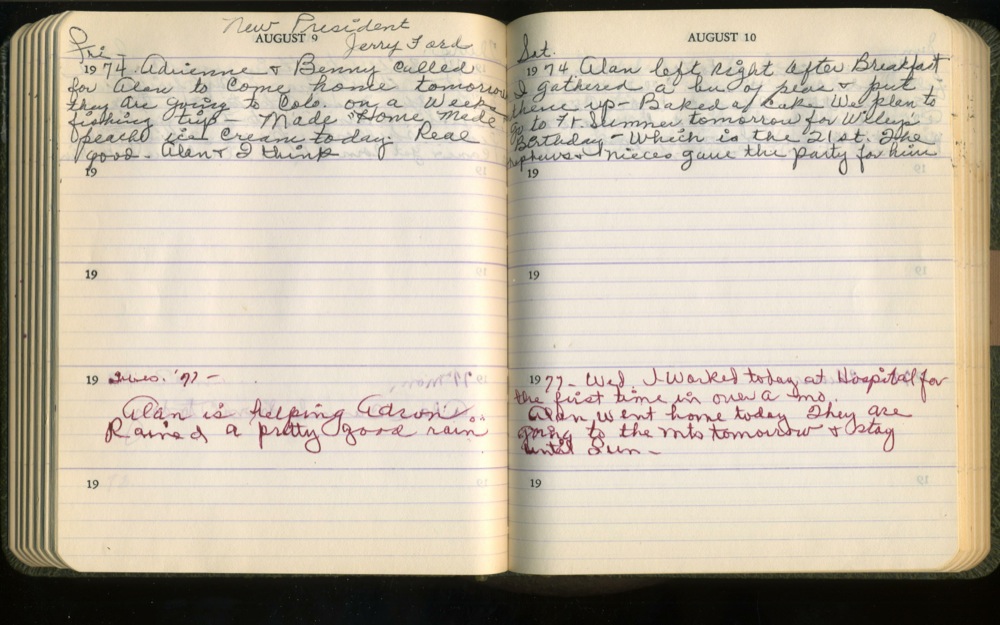 New President
AUGUST 9
Jerry Ford
Fri
1974 Adrienne & Benny called
for Alan to come home tomorrow
they are going to Colo. on a Weeks
fishing trip - Made Home Made
peach Cream today Real
good - Alan & I think
19
19
19 Tues. '77 -
Alan is helping Adron.
Rained a pretty good rain
19
AUGUST 10
Sat.
1974 Alan left right after Breakfast
I gathered a bu of peas & put
them up - Baked a Cake We plan to
go to Ft Sumner tomorrow for
Birthday - Which is the 21st. The
nephews & nieces gave the party for him
19
19
1977 - Wed. I worked today at Hospital for
the first time in over a mo.
Alan went home today They are
going to the mts tomorrow & stay
until Sun -
19